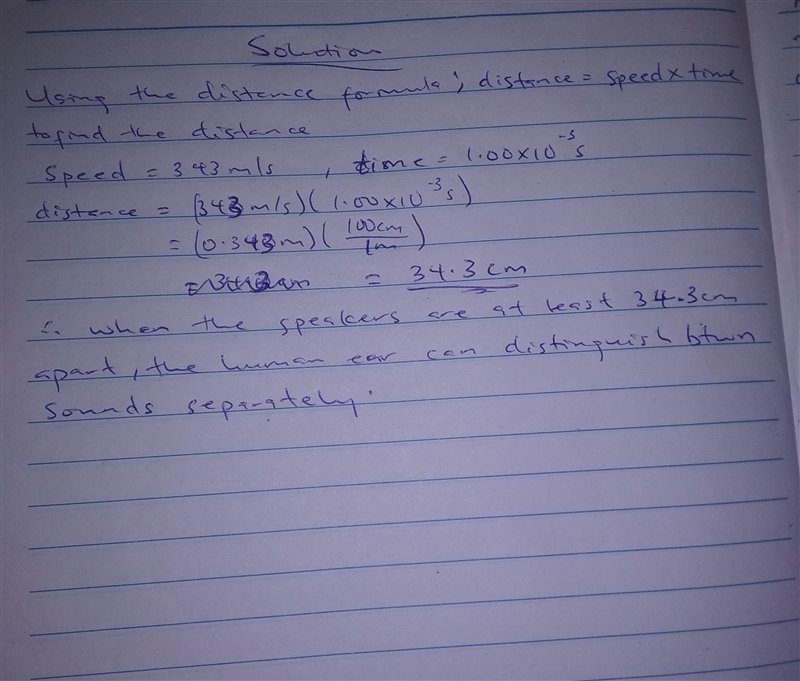 Solution
Using the distance formula; distance = speed x time
to find the distance
Speed = 343 m/s , time = 1.00×10⁻³ s
distance = (343 m/s)(1.00×10⁻³ s)
= (0.343 m)(100cm/1m)
= 34.3 cm
∴ when the speakers are at least 34.3cm
apart, the human ear can distinguish btwn
sounds separately.